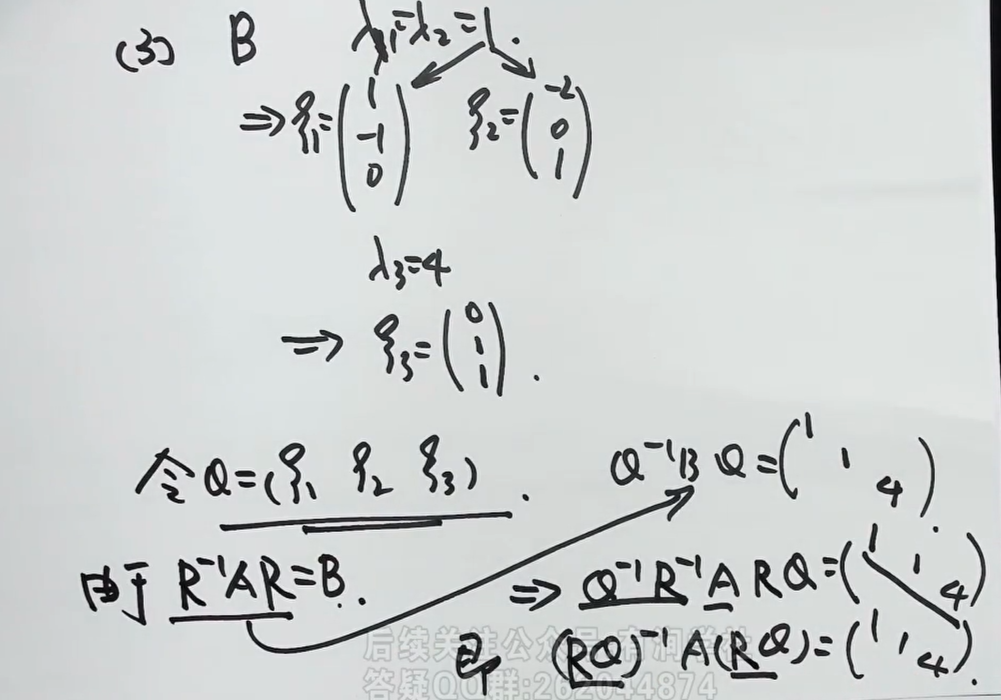 (3) B λ₁=λ₂=1.
⇒ ξ₁=(1 -1 0) ξ₂=(-2 0 1)
λ₃=4
⇒ ξ₃=(0 1 1).
令Q=(ξ₁ ξ₂ ξ₃). Q⁻¹BQ=(1 1 4).
由于 R⁻¹AR=B. ⇒ Q⁻¹R⁻¹ARQ=(1 1 4)
即 (RQ)⁻¹A(RQ)=(1 1 4).
后续关注公众号
答疑QQ群:262014874